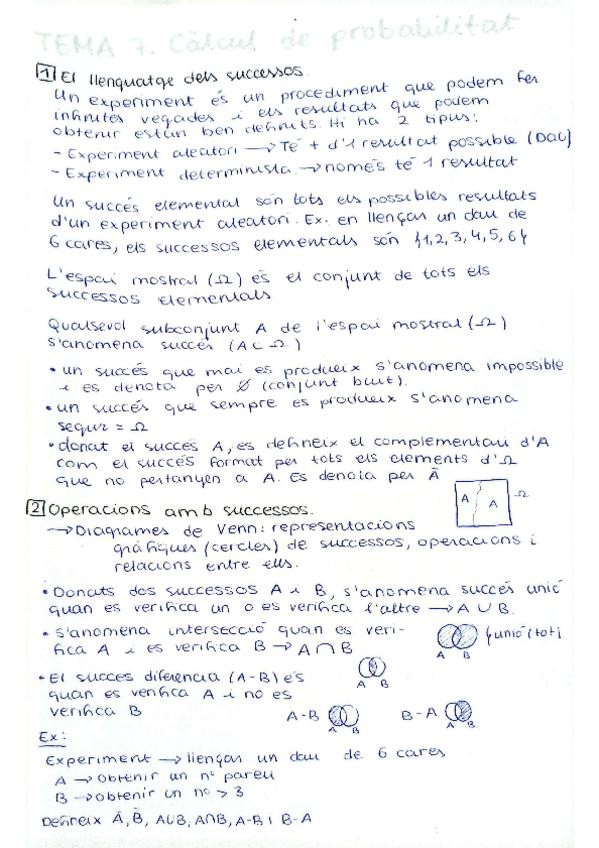 TEMA 7. Càlcul de probabilitat
1 El llenguatge dels successos.
Un experiment és un procediment que podem fer
infinites vegades i els resultats que podem
obtenir estan ben definits. Hi ha 2 tipus:
- Experiment aleatori → Té + d'1 resultat possible (DAU)
- Experiment determinista → només té 1 resultat
Un succés elemental són tots els possibles resultats
d'un experiment aleatori. Ex: en llençar un dau de
6 cares, els successos elementals són {1,2,3,4,5,6}
L'espai mostral (Ω) és el conjunt de tots els
successos elementals
Qualsevol subconjunt A de l'espai mostral (Ω)
s'anomena succés (A⊂Ω)
• un succés que mai es produeix s'anomena impossible
i es denota per Ø (conjunt buit).
• un succés que sempre es produeix s'anomena
segur = Ω
• donat el succés A, es defineix el complementari d'A
com el succés format per tots els elements d'Ω
que no pertanyen a A. Es denota per Ā
A A Ω
2 Operacions amb successos.
→ Diagrames de Venn: representacions
gràfiques (cercles) de successos, operacions i
relacions entre ells.
• Donats dos successos A i B, s'anomena succés unió
quan es verifica un o es verifica l'altre → A∪B.
• S'anomena intersecció quan es veri-
fica A i es verifica B → A∩B
A B {unió (tot)
A B
• El succés diferència (A-B) és
quan es verifica A i no es
verifica B
A-B A B B-A A B
Ex:
Experiment → llençar un dau de 6 cares
A → obtenir un nº parell
B → obtenir un nº > 3
Defineix Ā, B̄, A∪B, A∩B, A-B i B-A